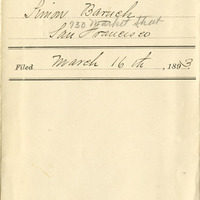 Simon Baruch
730 Market Street
San Francisco
Filed March 16th, 1893